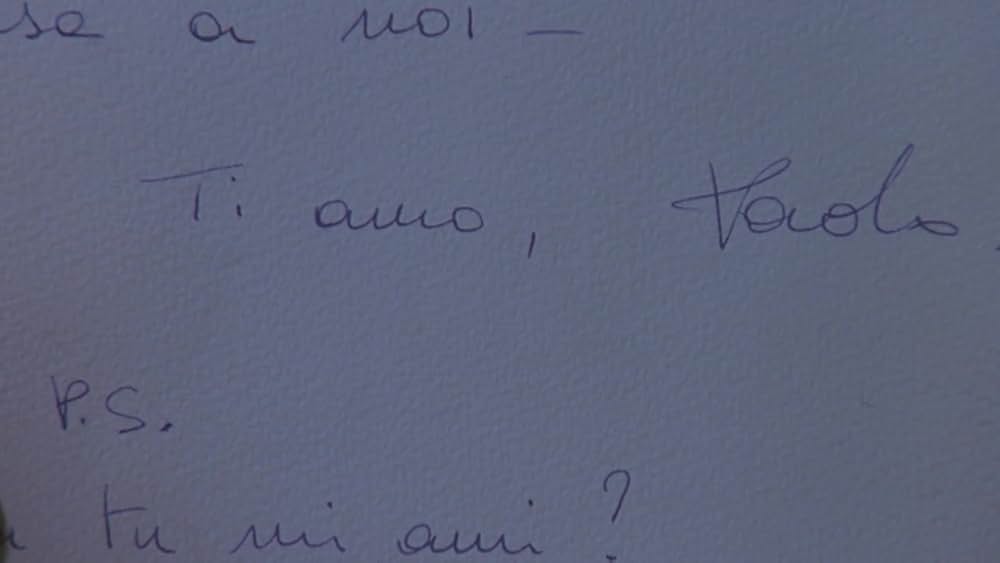 se a noi –
Ti amo, Paolo
P.S.
tu mi ami?